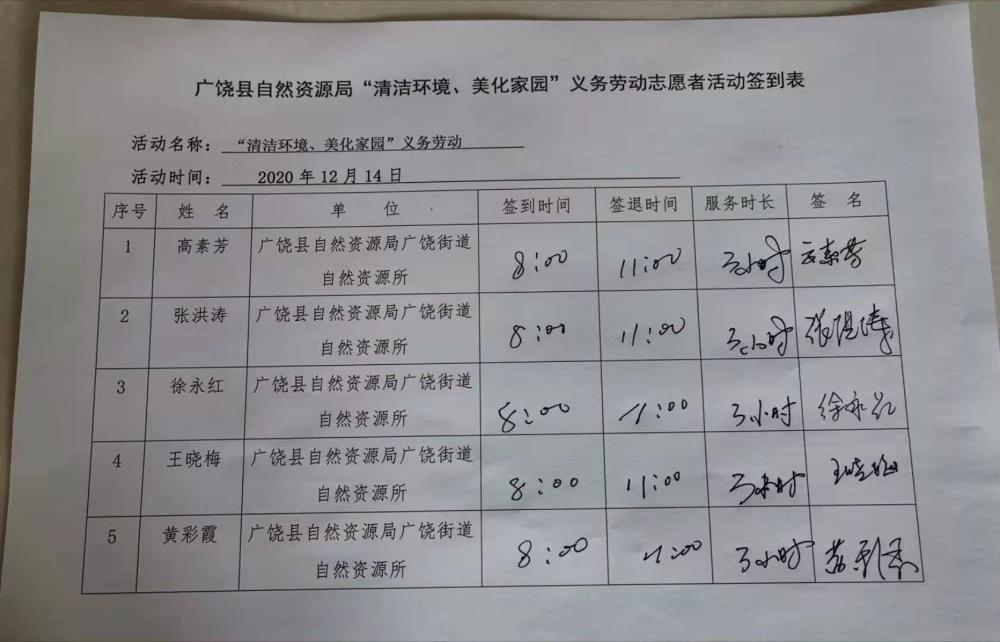 广饶县自然资源局“清洁环境、美化家园”义务劳动志愿者活动签到表
活动名称： “清洁环境、美化家园”义务劳动
活动时间： 2020 年 12 月 14 日
序号 姓 名 单 位 签到时间 签退时间 服务时长 签 名
1 高素芳 广饶县自然资源局广饶街道 8:00 11:00 3小时 高素芳
自然资源所
2 张洪涛 广饶县自然资源局广饶街道 8:00 11:00 3小时 张洪涛
自然资源所
3 徐永红 广饶县自然资源局广饶街道 8:00 11:00 3小时 徐永红
自然资源所
4 王晓梅 广饶县自然资源局广饶街道 8:00 11:00 3小时 王晓梅
自然资源所
5 黄彩霞 广饶县自然资源局广饶街道 8:00 11:00 3小时
自然资源所